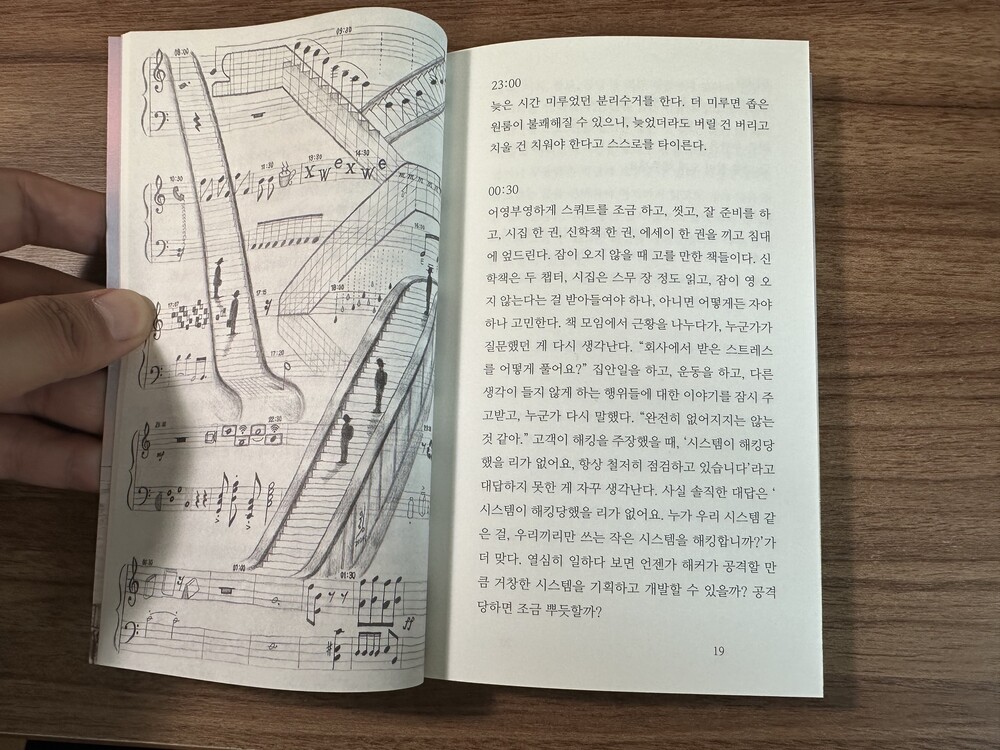 08:00
09:30
10:30
11:30
13:30
14:30
x w e x w e
17:15
17:20
18:00
22:30
07:00
01:30
ff
23:00
늦은 시간 미루었던 분리수거를 한다. 더 미루면 좁은
원룸이 불쾌해질 수 있으니, 늦었더라도 버릴 건 버리고
치울 건 치워야 한다고 스스로를 타이른다.
00:30
어영부영하게 스쿼트를 조금 하고, 씻고, 잘 준비를 하
고, 시집 한 권, 신학책 한 권, 에세이 한 권을 끼고 침대
에 엎드린다. 잠이 오지 않을 때 고를 만한 책들이다. 신
학책은 두 챕터, 시집은 스무 장 정도 읽고, 잠이 영 오
지 않는다는 걸 받아들여야 하나, 아니면 어떻게든 자야
하나 고민한다. 책 모임에서 근황을 나누다가, 누군가가
질문했던 게 다시 생각난다. “회사에서 받은 스트레스
를 어떻게 풀어요?” 집안일을 하고, 운동을 하고, 다른
생각이 들지 않게 하는 행위들에 대한 이야기를 잠시 주
고받고, 누군가 다시 말했다. “완전히 없어지지는 않는
것 같아.” 고객이 해킹을 주장했을 때, ‘시스템이 해킹당
했을 리가 없어요, 항상 철저히 점검하고 있습니다’라고
대답하지 못한 게 자꾸 생각난다. 사실 솔직한 대답은 ‘
시스템이 해킹당했을 리가 없어요. 누가 우리 시스템 같
은 걸, 우리끼리만 쓰는 작은 시스템을 해킹합니까?’가
더 맞다. 열심히 일하다 보면 언젠가 해커가 공격할 만
큼 거창한 시스템을 기획하고 개발할 수 있을까? 공격
당하면 조금 뿌듯할까?
19